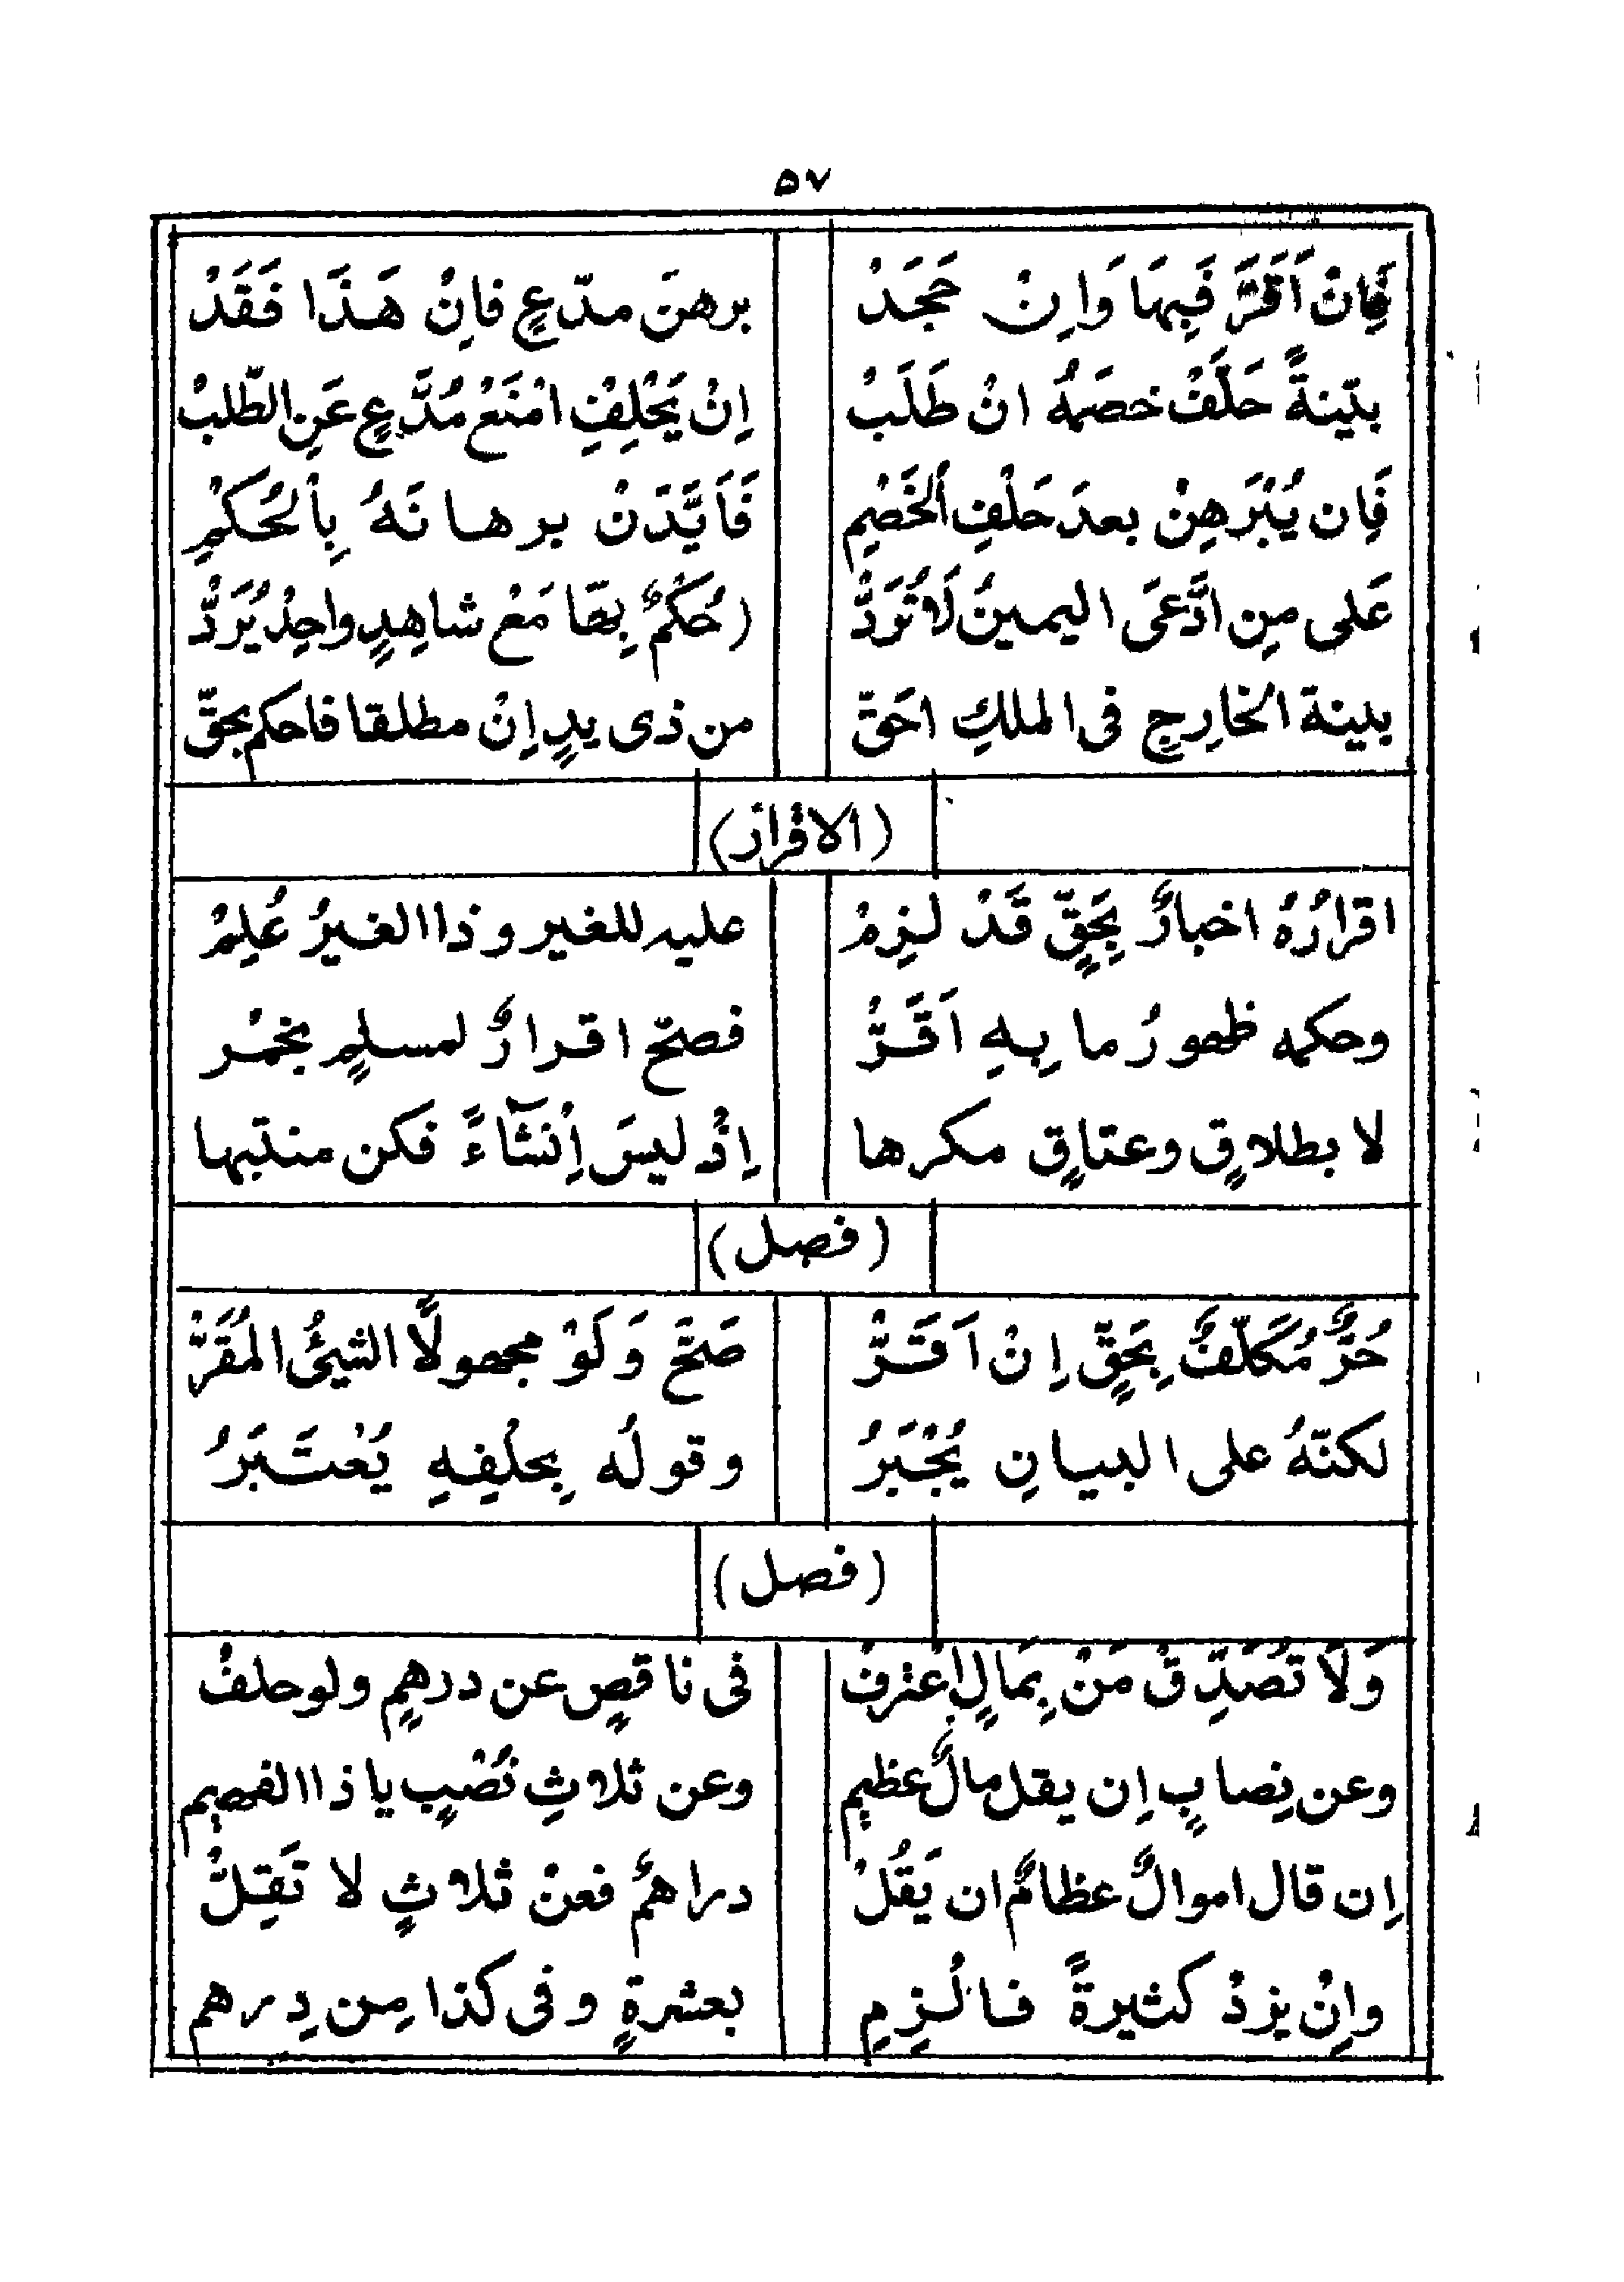 ٥٧
فَإِنْ اَقَرَّ فَبِهَا وَاِنْ جَحَدْ برهنَ مدّعٍ فاِنْ هَذَا فَقَدْ
بيّنةً حَلِّفْ خصمَهُ انْ طَلَبْ اِنْ يَحْلِفِ امْنَعْ مُدَّعٍ عَنِ الطّلبْ
فَاِن يُبَرْهِنْ بعدَ حَلْفِ الْخَصْمِ فَاَيِّدَنْ برهانَهُ بِالْحُكْمِ
عَلى مِن ادَّعَى اليمينُ لَا تُرَدُّ (حُكْمٌ بِهَا مَعْ شاهِدٍ واحِدْ يُرَدُّ
بينة الخارِجِ فى الملكِ احَقّ من ذى يدٍ اِنْ مطلقا فاحكم بحقّ
(الاقرار)
اقرارُهُ اخبارٌ بِحَقٍّ قَدْ لَزِمْ عليه للغير وذا الغيرُ عُلِمْ
وحكمه ظهورُ ما بِهِ اَقَرَّ فصحّ اقرارٌ لمسلمٍ بخمْر
لا بطلاقٍ وعتاقٍ مكرها اِذْ ليسَ اِنْشَآءً فكن منتبها
(فصل)
حُرٌّ مُكَلَّفٌ بِحَقٍّ اِنْ اَقَرَّ صَحَّ وَلَوْ مجهولًا الشيئُ المُقَرّْ
لكنّهُ على البيانِ يُجْبَرُ وقولُه بِحلْفِهِ يُعْتَبَرُ
(فصل)
وَلَا تُصَدِّقْ مَنْ بِمَالٍ اِعْترفْ فى ناقصٍ عن درهمٍ ولو حلفْ
وعن نِصابٍ اِن يقل مالٌ عظيم وعن ثلاثِ نُصْبٍ يا ذا الفهيم
اِن قال اموالٌ عظامٌ ان يَقُلْ دراهمٌ فعنْ ثلاثٍ لا تَقِلّْ
واِنْ يزدْ كثيرةً فالْزِمِ بعشرةٍ وفى كذا مِن دِرهم